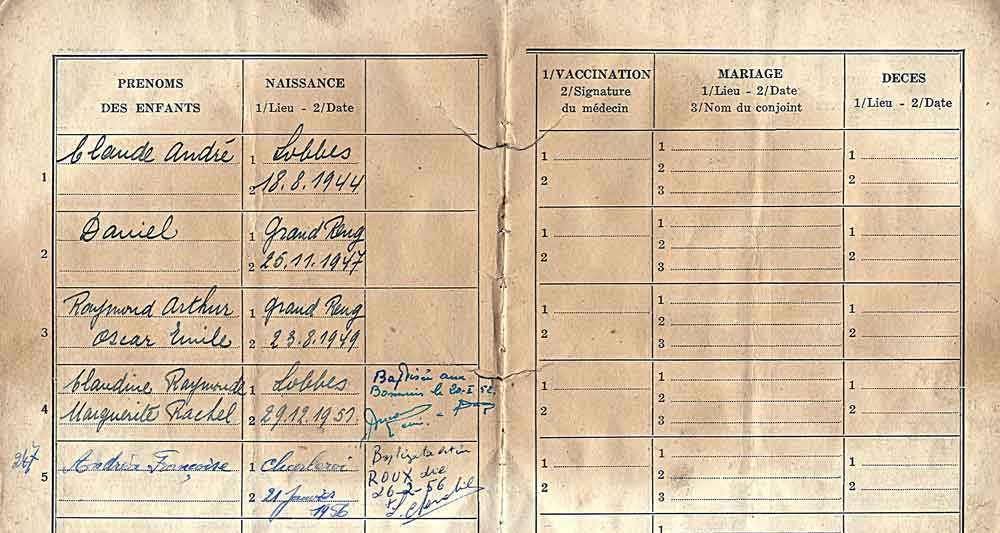 PRENOMS
DES ENFANTS
NAISSANCE
1/Lieu - 2/Date
1/VACCINATION
2/Signature
du médecin
MARIAGE
1/Lieu - 2/Date
3/Nom du conjoint
DECES
1/Lieu - 2/Date
1
Claude André
1 Lobbes
2 18.8.1944
1
2
1
2
3
1
2
2
Daniel
1 Grand Reng
2 26.11.1947
1
2
1
2
3
1
2
3
Raymond Arthur
Oscar Emile
1 Grand Reng
2 23.8.1949
1
2
1
2
3
1
2
4
Claudine Raymonde
Marguerite Rachel
1 Lobbes
2 29.12.1951
Baptisée aux
Bonniers le 20-I 52.
1
2
1
2
3
1
2
267
5
Andréa Françoise
1 Charleroi
2 21 janvier
1956
ROUX die
26-2-56
1
2
1
2
3
1
2
1